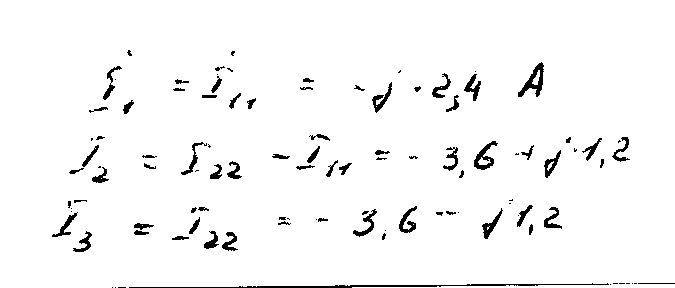 İ₁ = İ₁₁ = -j·2,4 A
I₂ = I₂₂ - I₁₁ = -3,6 + j·1,2
I₃ = I₂₂ = -3,6 - j1,2